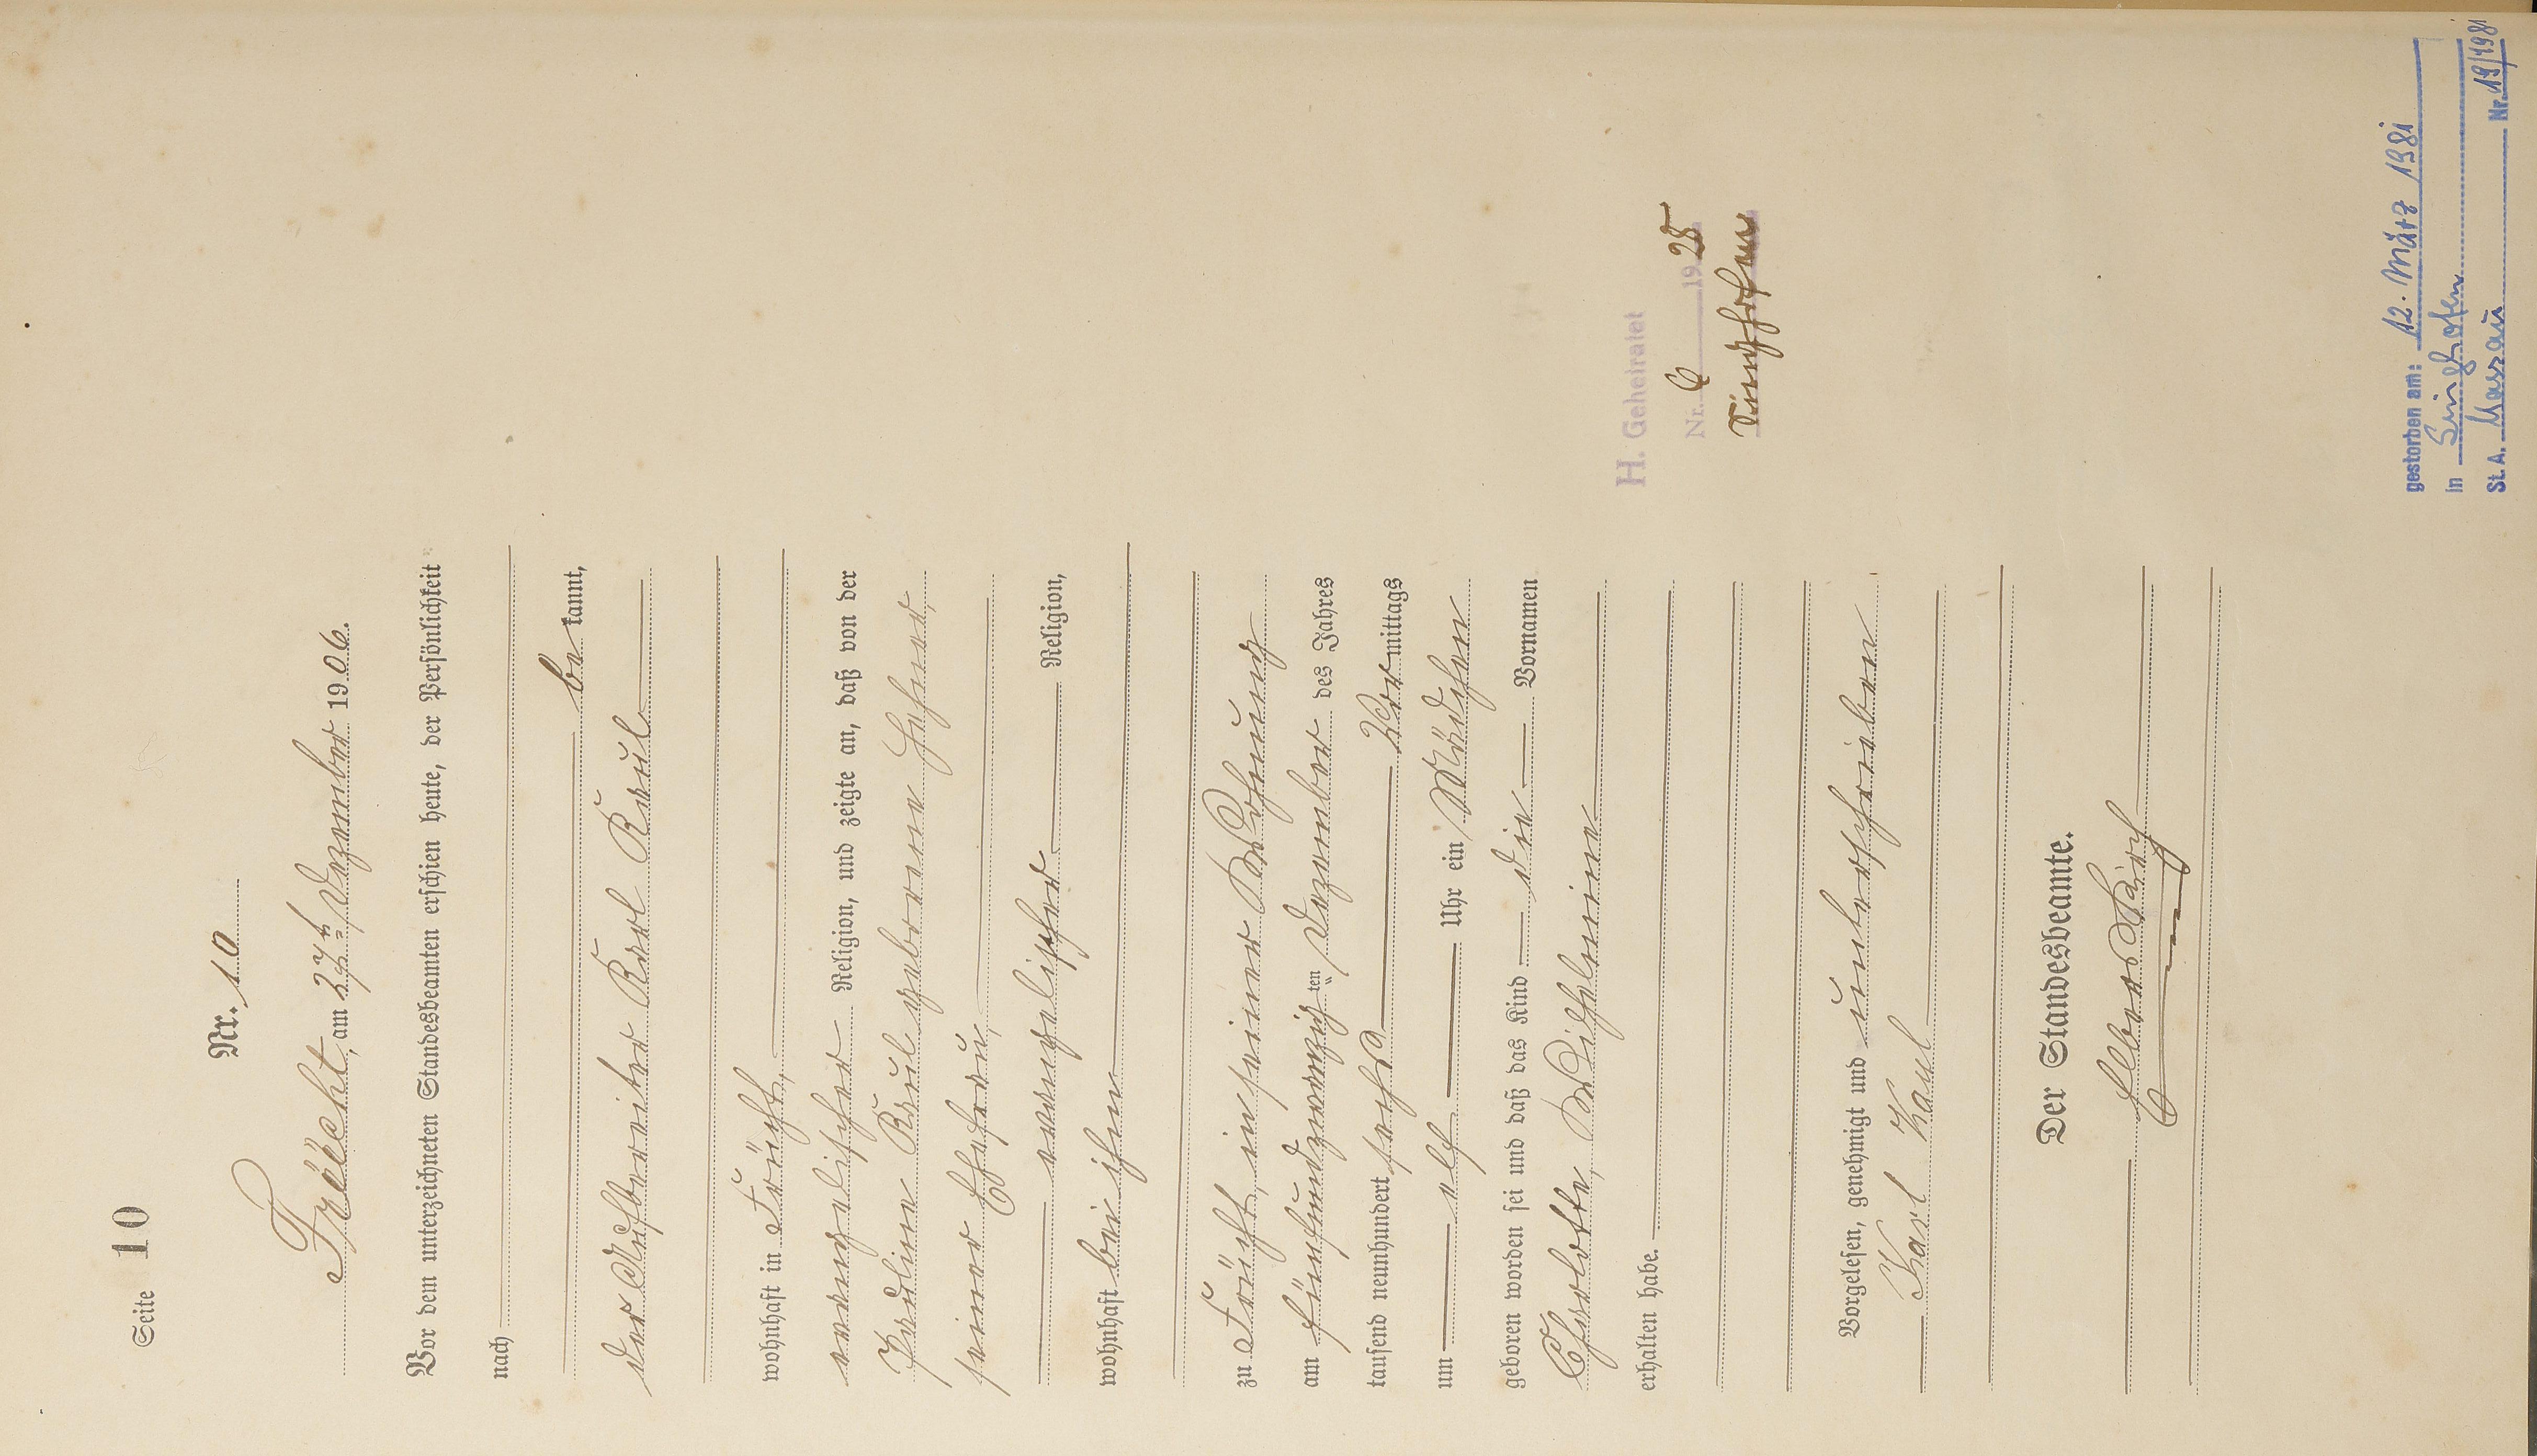 Seite 10
Nr. 10
Frücht, am 27ten Dezember 1906.
Vor dem unterzeichneten Standesbeamten erschien heute, der Persönlichkeit
nach
bekannt,
der Aufbereiter Karl Kaul
wohnhaft in Frücht,
evangelischer Religion, und zeigte an, daß von der
Pauline Kaul geborene
seiner Ehefrau,
evangelischer Religion,
wohnhaft bei ihm
zu Frücht, in seiner Wohnung
am fünfundzwanzigten Dezember des Jahres
tausend neunhundert sechs Vormittags
um elf Uhr ein Mädchen
geboren worden sei und daß das Kind die Vornamen
Charlotte, Wilhelmine
erhalten habe.
Vorgelesen, genehmigt und unterschrieben
Karl Kaul
Der Standesbeamte.
H. Geheiratet
Nr. 6 1925
Singhofen
gestorben am: 12. März 1981
in Singhofen
St. A. Nassau Nr. 19/1981